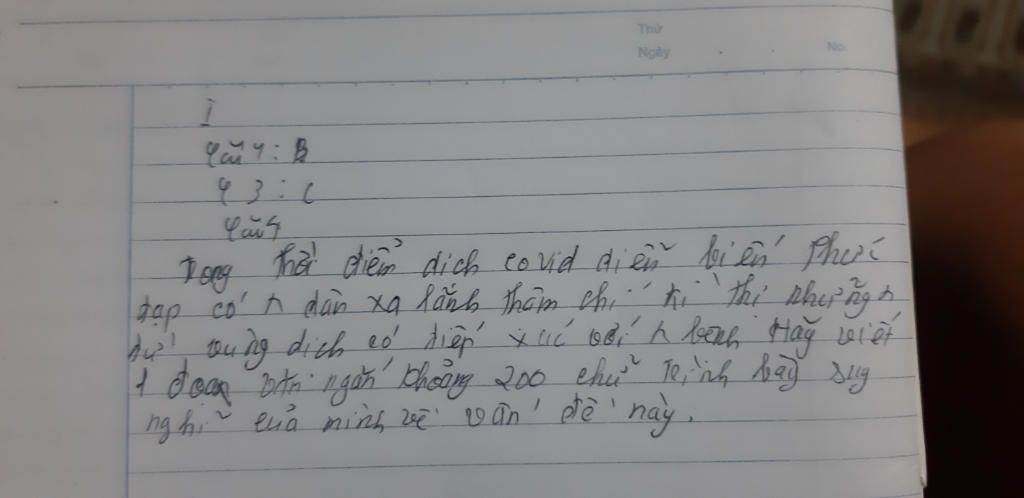 Thứ
Ngày . . No.
I
Câu 1: B
C 3: C
Câu 4
Trong thời điểm dịch covid diễn biến Phức
tạp có n dân xa lánh thậm chí kì thị những n
từ vùng dịch có tiếp xúc với n bệnh Hãy viết
1 đoạn văn ngắn khoảng 200 chữ trình bày suy
nghĩ của mình về vấn đề này.